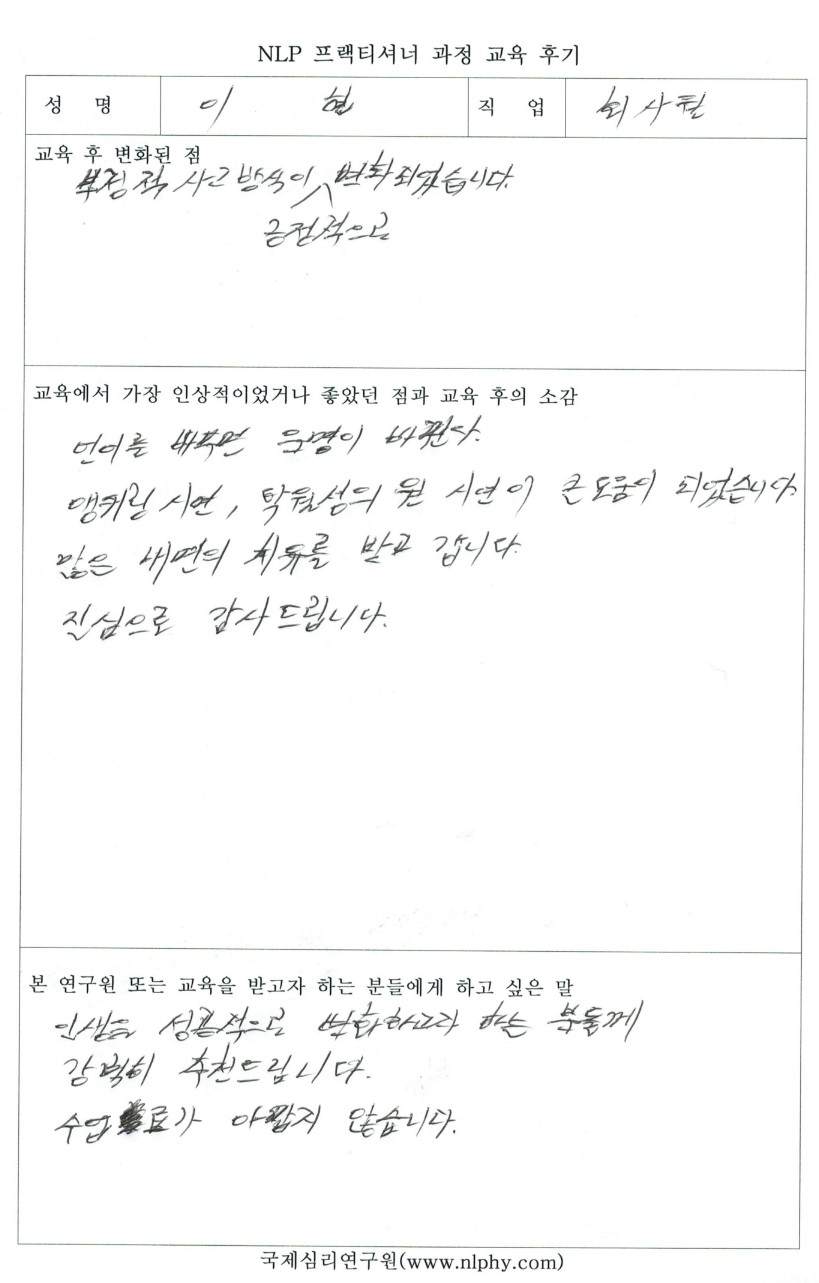 NLP 프랙티셔너 과정 교육 후기
성 명 이 현 직 업 회사원
교육 후 변화된 점
부정적 사고방식이 변화되었습니다.
긍정적으로
교육에서 가장 인상적이었거나 좋았던 점과 교육 후의 소감
언어를 바꾸면 운명이 바뀐다.
앵커링 시연, 탁월성의 원 시연이 큰 도움이 되었습니다.
많은 내면의 치유를 받고 갑니다.
진심으로 감사드립니다.
본 연구원 또는 교육을 받고자 하는 분들에게 하고 싶은 말
인생을 성공적으로 변화하고자 하는 분들께
강력히 추천드립니다.
수업료가 아깝지 않습니다.
국제심리연구원(www.nlphy.com)